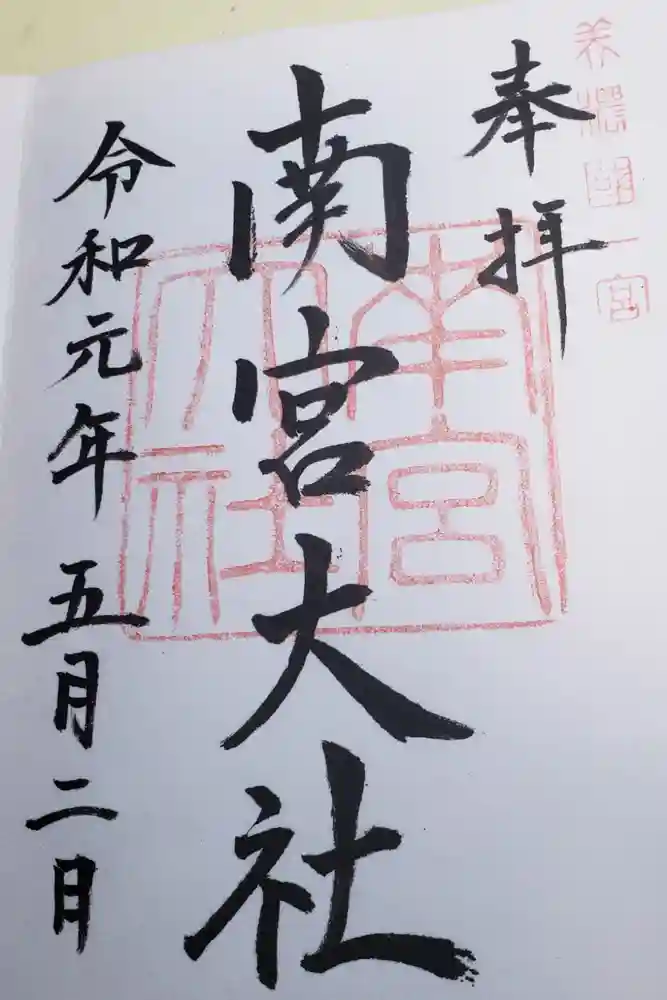 美濃國一宮
奉拝
南宮大社
南宮大社
令和元年五月二日